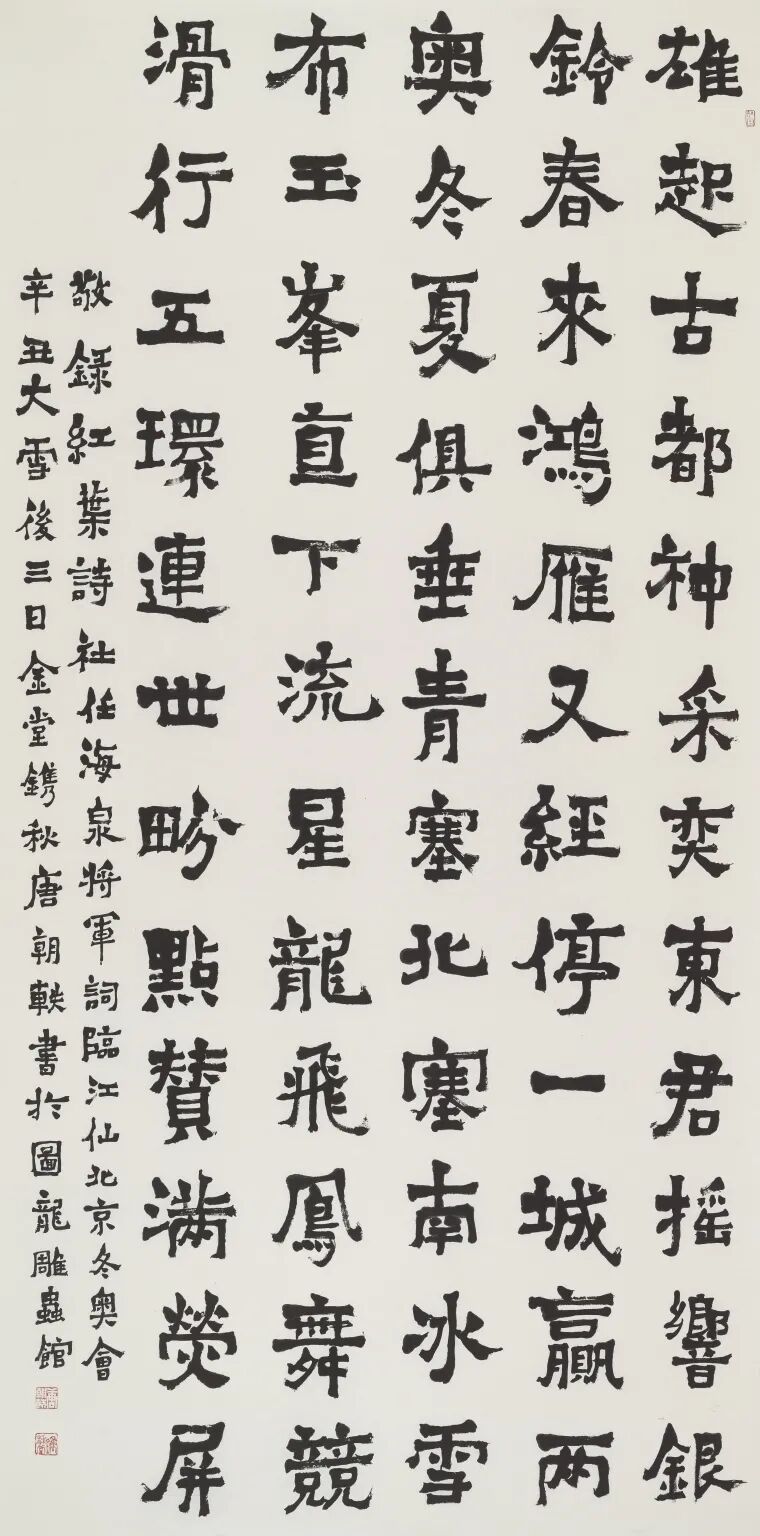 雄起古都神采奕東君摇響銀
鈴春來鴻雁又經停一城贏两
奥冬夏俱垂青塞北塞南冰雪
布玉峯直下流星龍飛鳳舞競
滑行五環連世畛點赞满熒屏
敬録紅葉詩社任海泉将軍詞臨江仙北京冬奥會
辛丑大雪後三日金堂鐫秋唐朝軼書於圖龍雕蟲館